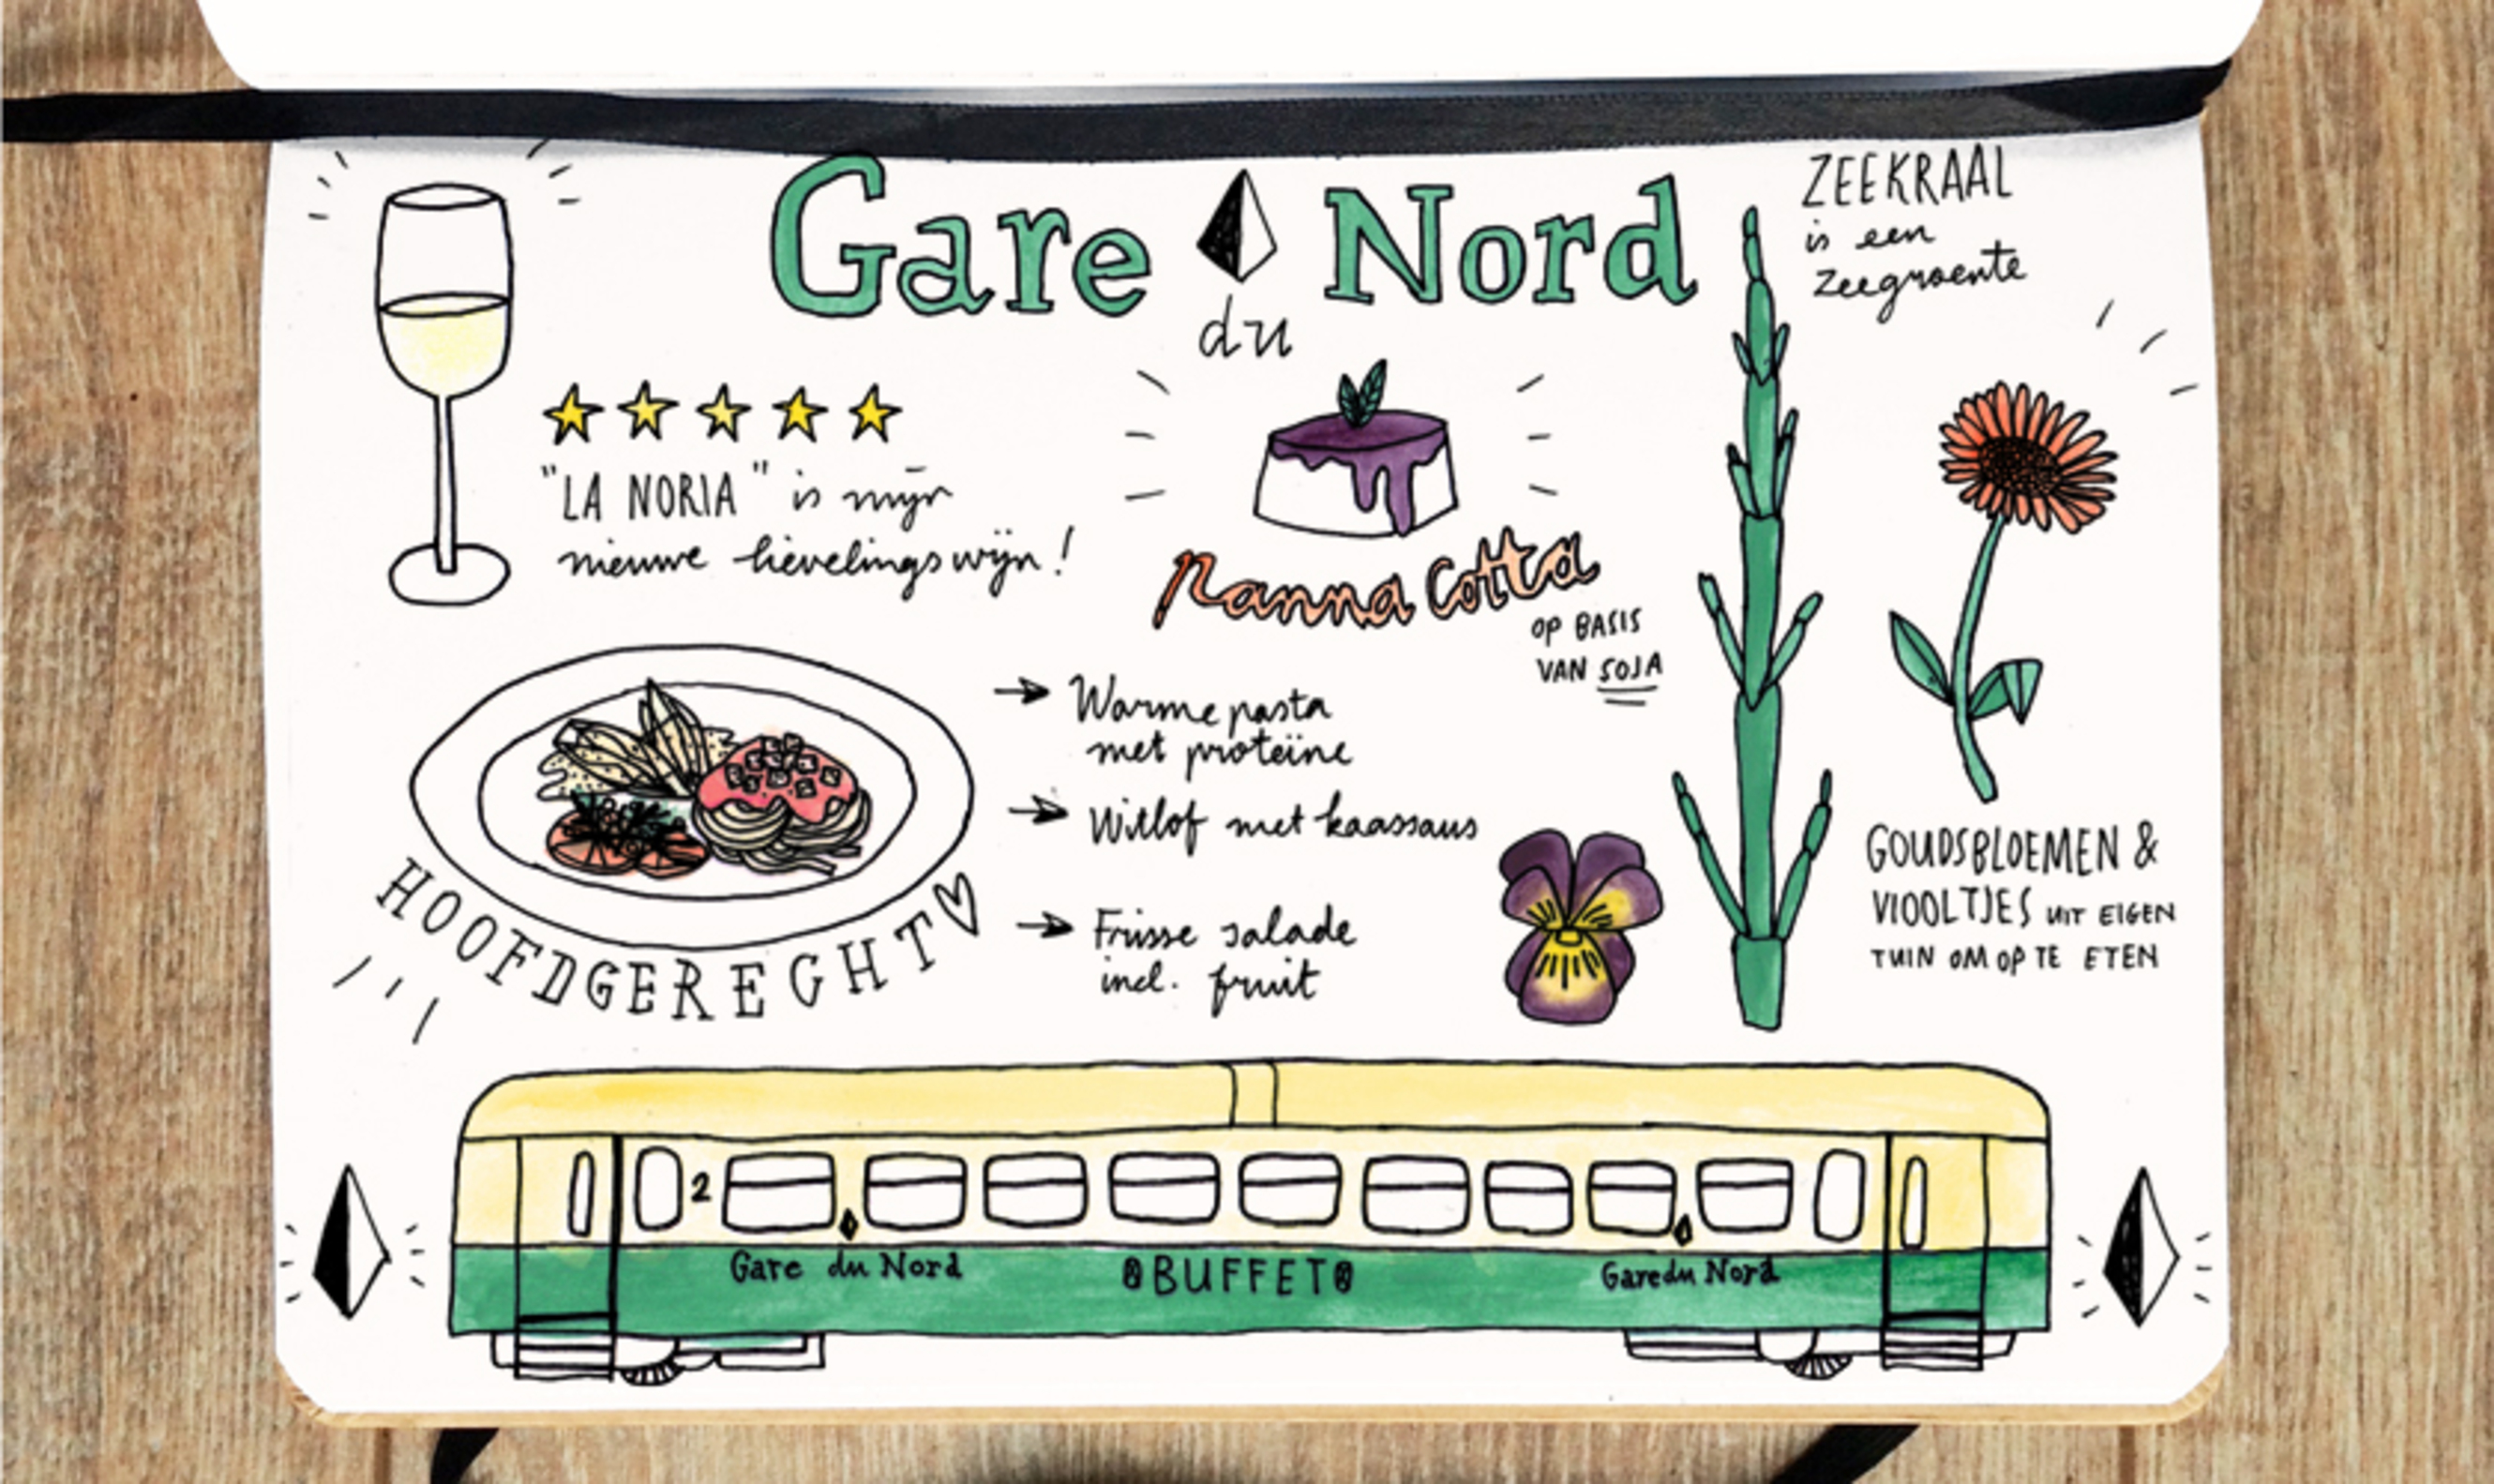 Gare du Nord
ZEEKRAAL
is een
zeegroente
"LA NORIA" is mijn
nieuwe lievelingswijn!
Panna Cotta
OP BASIS
VAN SOJA
→ Warme pasta
met proteïne
→ Witlof met kaassaus
→ Frisse salade
incl. fruit
HOOFDGERECHT
GOUDSBLOEMEN &
VIOOLTJES UIT EIGEN
TUIN OM OP TE ETEN
2
Gare du Nord
BUFFET
Gare du Nord